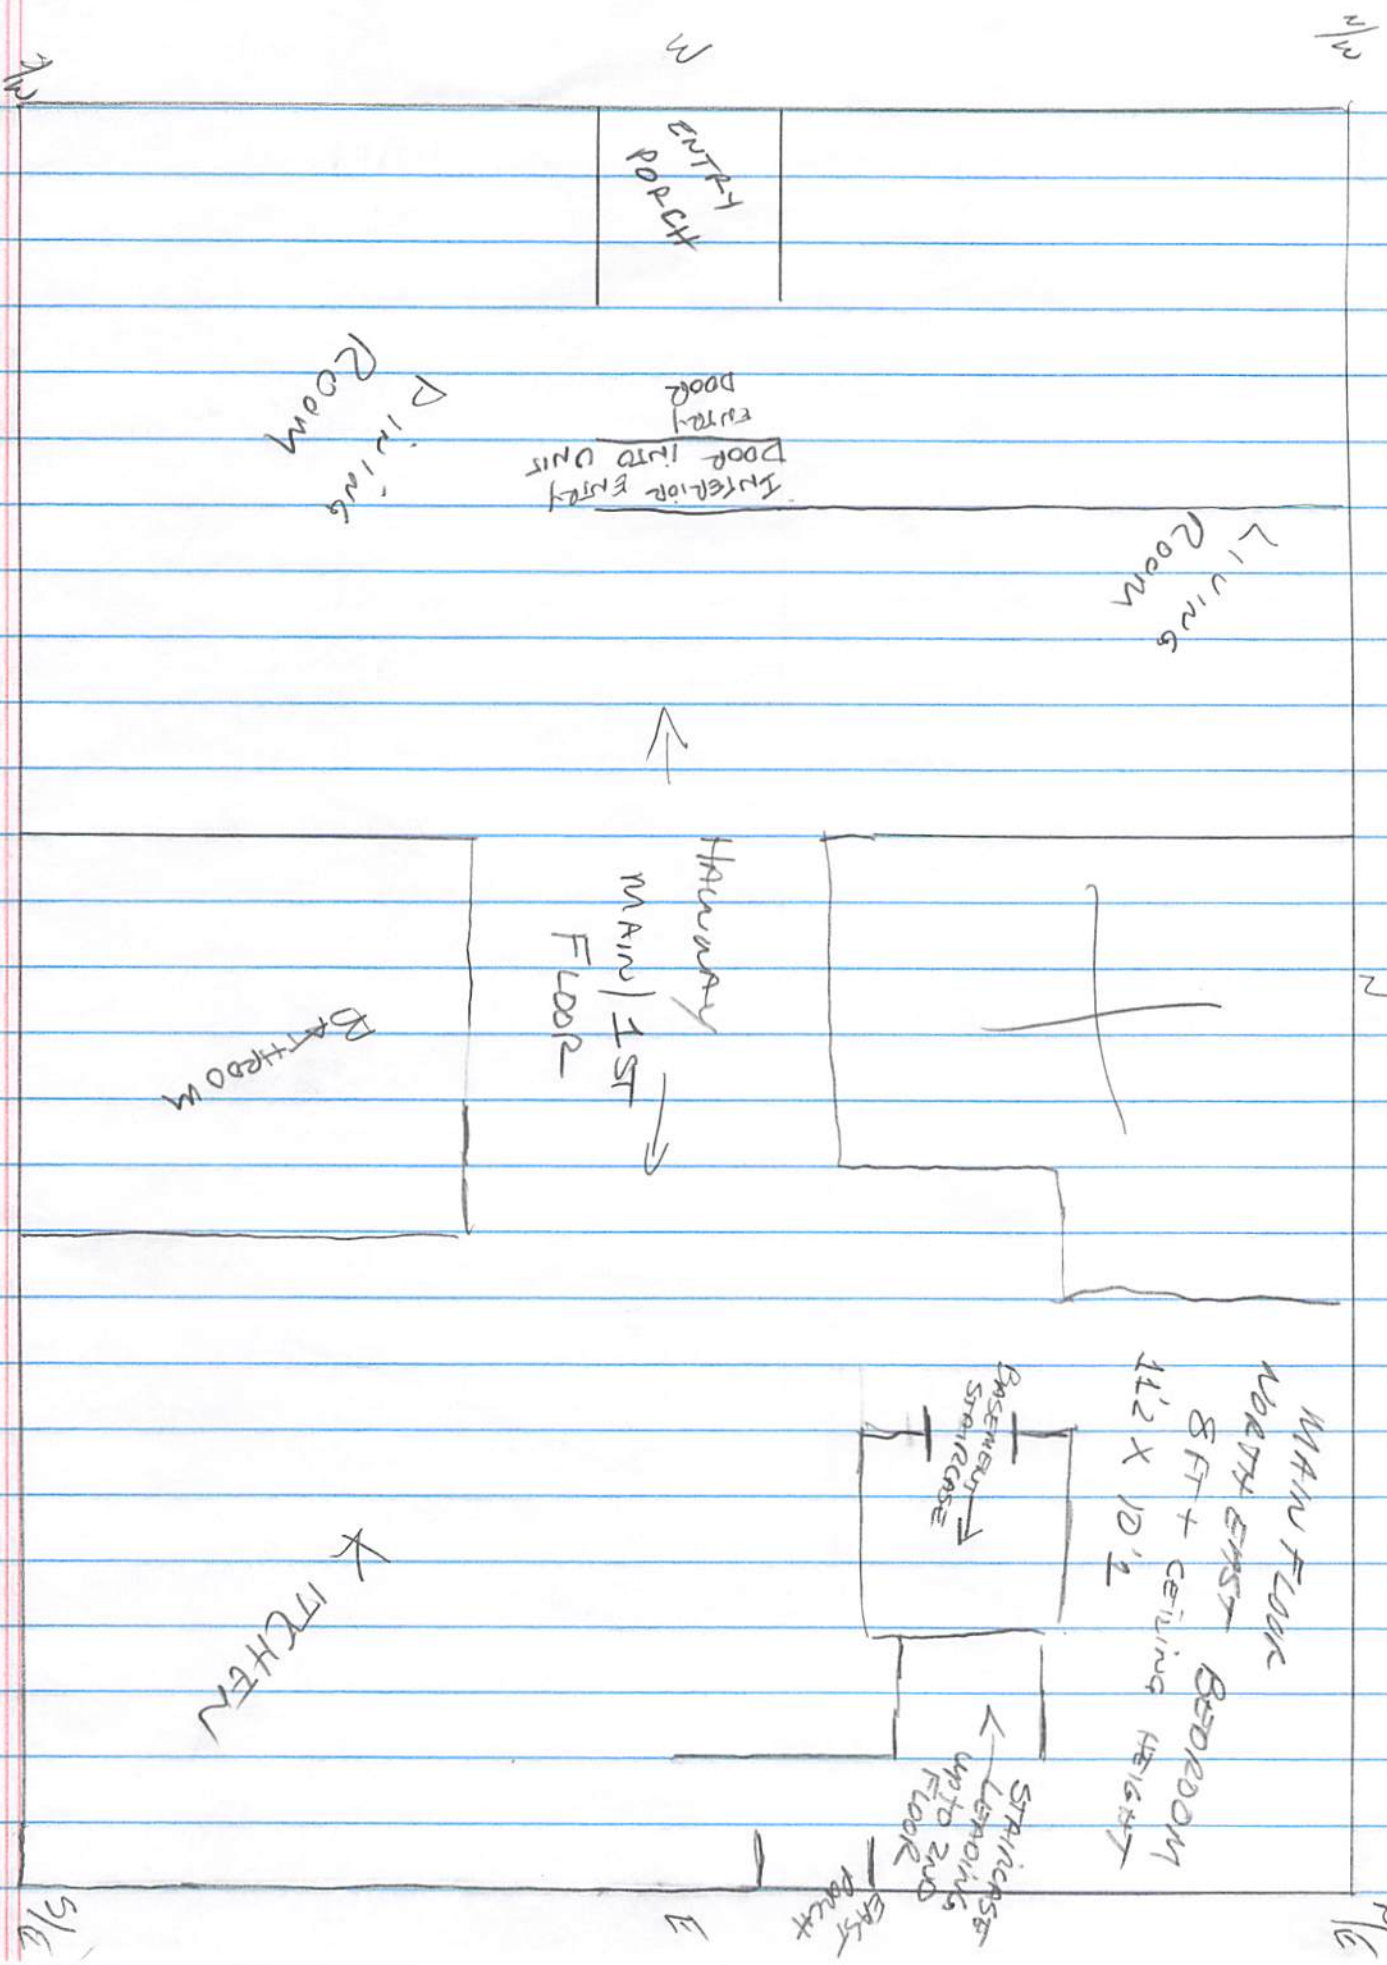 N/W
W
S/W
ENTRY
PORCH
DINING
ROOM
ENTRY
DOOR
INTERIOR ENTRY
DOOR INTO UNIT
LIVING
ROOM
HALLWAY
MAIN/1ST
FLOOR
N
BATHROOM
MAIN FLOOR
NORTH EAST BEDROOM
8FT + CEILING HEIGHT
11'2 X 10'1
BASEMENT
STAIRCASE
KITCHEN
STAIRCASE
LEADING
UP TO 2ND
FLOOR
EAST
PORCH
N/E
E
S/E